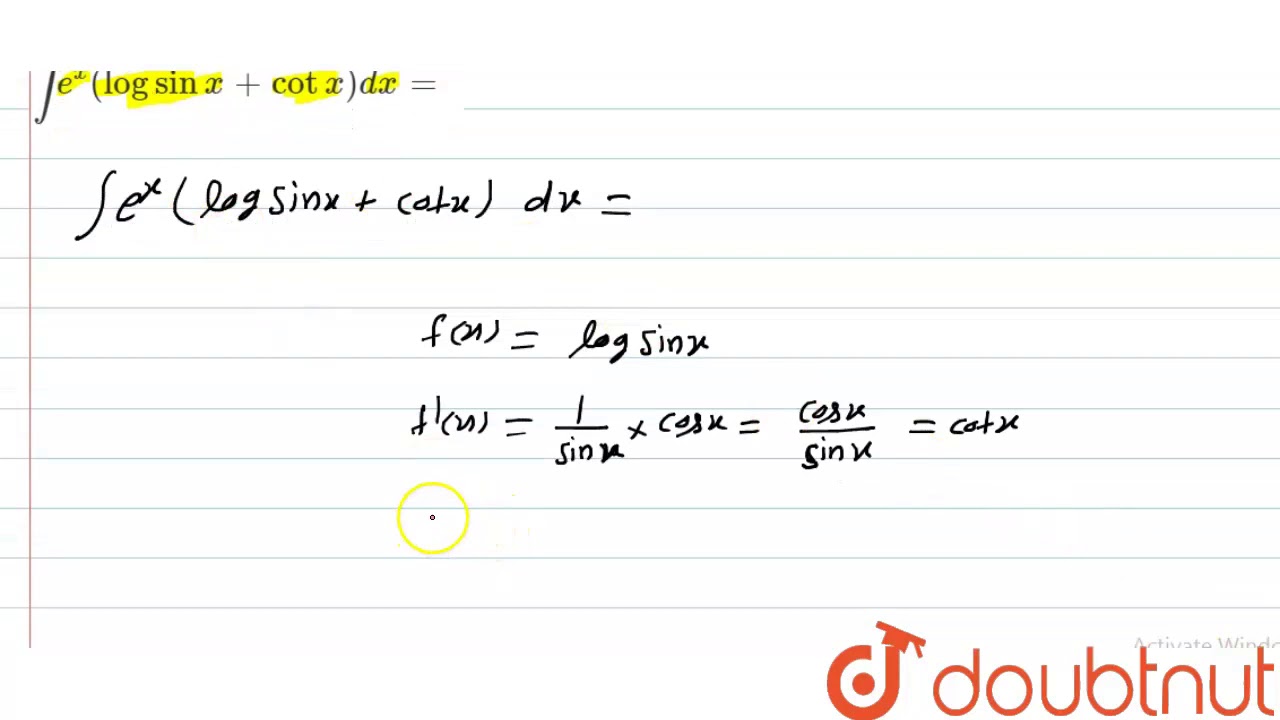 ∫eˣ(log sin x + cot x)dx =
∫eˣ(log sinx + cotx) dx =
f(x) = log sinx
f'(x) = 1/sinx × cosx = cosx/sinx = cotx
Activate Windo
doubtnut